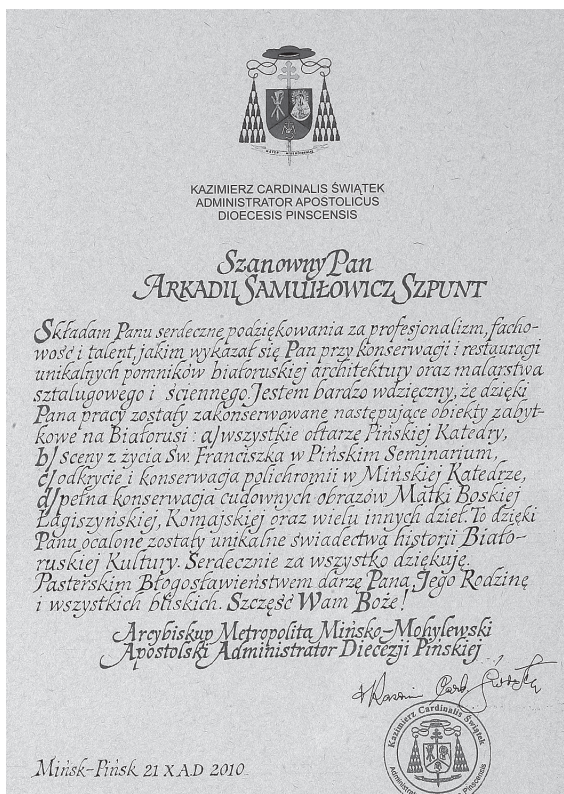 KAZIMIERZ CARDINALIS ŚWIĄTEK
ADMINISTRATOR APOSTOLICUS
DIOECESIS PINSCENSIS
Szanowny Pan
ARKADIJ SAMUIŁOWICZ SZPUNT
Składam Panu serdeczne podziękowania za profesjonalizm, facho-
wość i talent, jakim wykazał się Pan przy konserwacji i restauragi
unikalnych pomników białoruskiej architektury oraz malarstwa
sztalugowego i ściennego. Jestem bardzo wdzięczny, że dzięki
Pana pracy zostały zakonserwowane następujące obiekty zabyt-
kowe na Białorusi: a/ wszystkie ołtarze Pińskiej Katedry,
b/ sceny z życia Św. Franciszka w Pińskim Seminarium,
c/ odkrycie i konserwacja polichromii w Mińskiej Katedrze,
d/ pełna konserwacja cudownych obrazów Matki Boskiej
Łagiszyńskiej, Komajskiej oraz wielu innych dzieł. To dzięki
Panu ocalone zostały unikalne świadectwa historii Biało-
ruskiej Kultury. Serdecznie za wszystko dziękuję.
Pasterskim Błogosławieństwem darzę Pana, Jego Rodzinę
i wszystkich bliskich. Szczęść Wam Boże!
Arcybiskup Metropolita Mińsko-Mohylewski
Apostolski Administrator Diecezji Pińskiej
Kazimierz Cardinalis Świątek
Mińsk-Pińsk 21 X A.D 2010